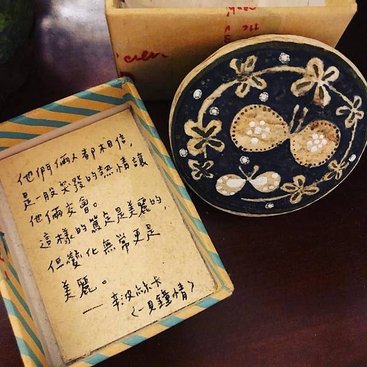 他們倆人都相信,
是一股突發的熱情讓
他倆交會。
這樣的篤定是美麗的,
但變化無常更是
美麗。
——辛波絲卡
〈一見鍾情〉